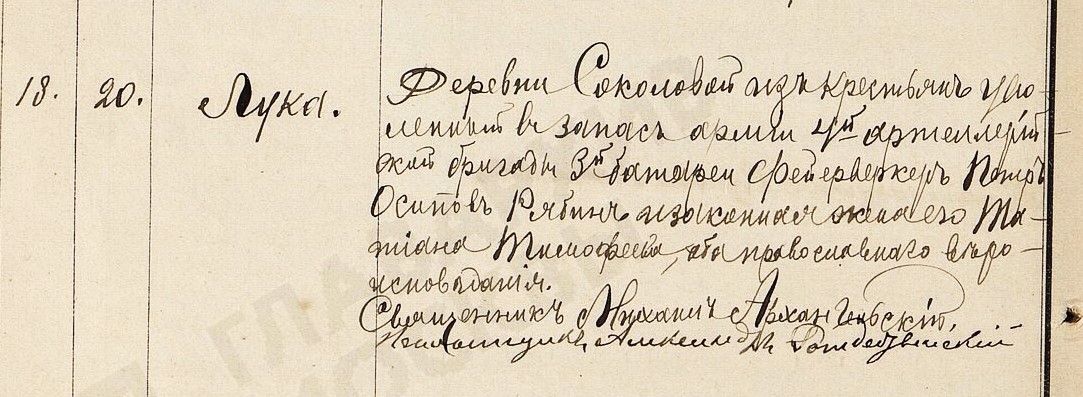 18. 20. Лука. Деревни Соколовой изъ крестьянъ уво-
ленный въ запасъ армии 4й артеллерій-
ской бригады 3й батареи фейерверкеръ Петръ
Осиповъ Рябинъ и законная жена его Та-
тіана Тимофеева, оба православнаго вѣро-
исповѣданія.
Священникъ Михаилъ Архангельскій.
Псаломщикъ Александръ Рождественскій